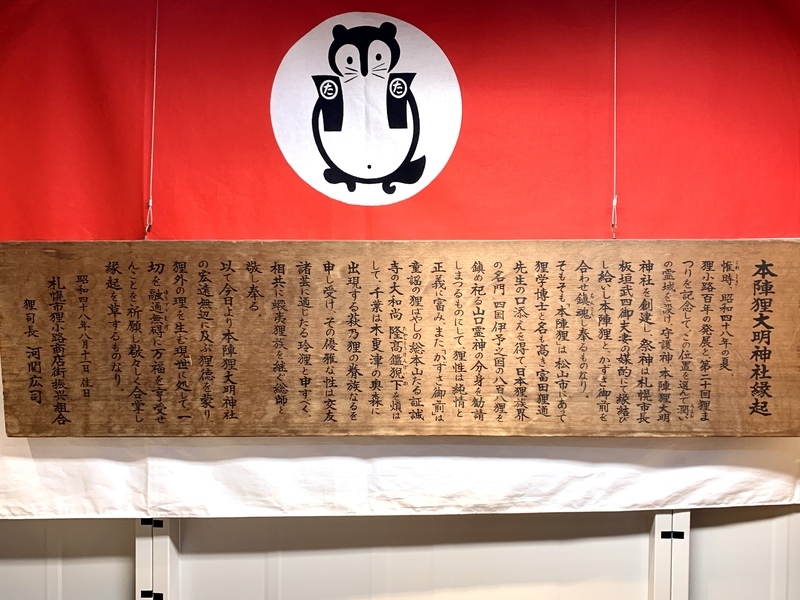 た
た
本陣狸大明神社縁起
惟時、昭和四十八年の夏
狸小路百年の発展と第二十回狸ま
つりを記念して、この位置を選んで潤い
の霊域を設け、守護神本陣狸大明
神社を創建し、祭神は札幌市長
板垣武四御夫妻の媒酌にて縁結び
し給へし本陣狸とかずさ御前を
合わせ鎮魂し奉るものなり。
そもそも、本陣狸は、松山市にあって
狸学博士と名も高き富田狸通
先生の口添えを得て日本狸族界
の名門、四国伊予之国の八百八狸を
鎮め祀る山口霊神の分身を勧請
しまつるものにして、狸性は純情と
正義に富み、また、かずさ御前は
童謡の狸ばやしの総本山たる証誠
寺の大和尚 隆高鑑猊下を煩は
して、千葉は木更津の奥森に
出現する萩乃狸の眷族なるを
申し受け、その優雅な性は交友
諸芸に通じたる玲狸と申すべく、
相共に蝦夷狸族を統べ総師と
敬し奉る
以て今日より本陣狸大明神社
の宏遠無辺に及ぶ狸徳を蒙り、
狸外の理を生も現世に処して一
切を融通無碍に万福を享受せ
んことを祈願し、敬々しく合掌し
縁起を草するものなり。
昭和四十八年八月十一日 佳日
札幌市狸小路商店街振興組合
狸司長 河関広司